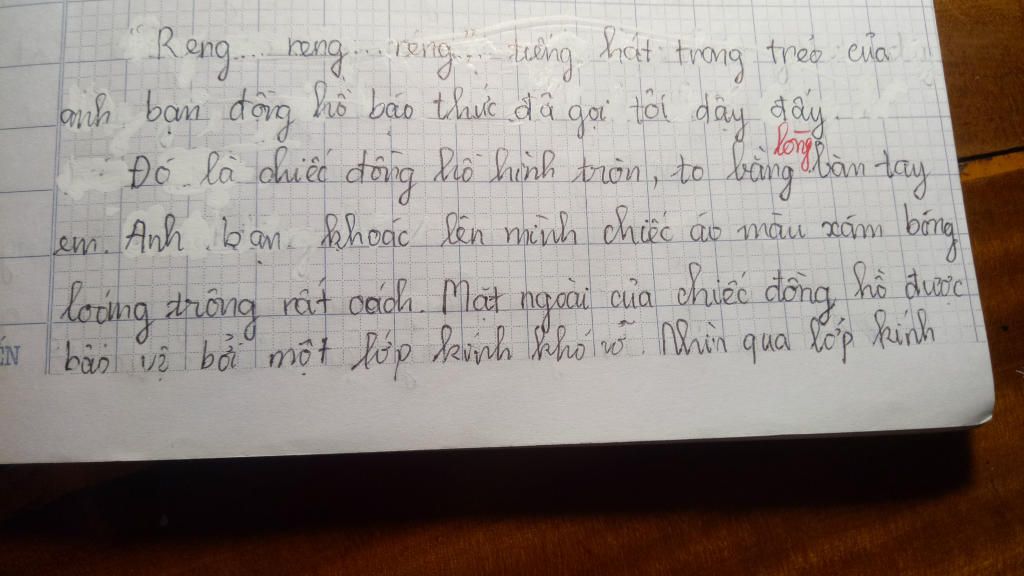 "Reng... reng... reng"... tiếng hát trong trẻo của
anh bạn đồng hồ báo thức đã gọi tôi dậy đấy.
Đó là chiếc đồng hồ hình tròn, to bằng lòng bàn tay
em. Anh bạn khoác lên mình chiếc áo màu xám bóng
loáng trông rất oách. Mặt ngoài của chiếc đồng hồ được
bảo vệ bởi một lớp kính khó vỡ. Nhìn qua lớp kính